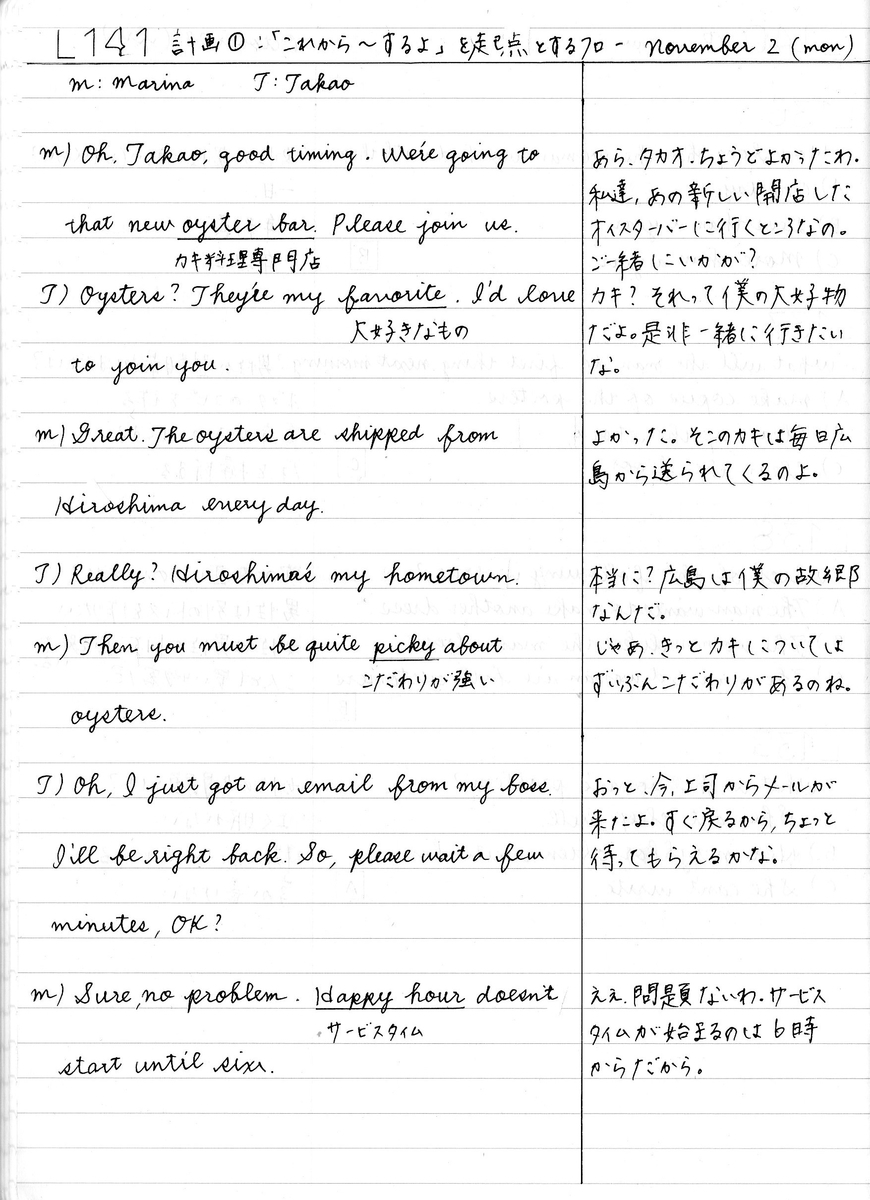 L141 計画①:「これから〜するよ」を起点とするフロー November 2 (mon)
m: marina T: Takao
m) Oh, Takao, good timing. We're going to
that new oyster bar. Please join us.
カキ料理専門店
T) Oysters? They're my favorite. I'd love
大好きなもの
to join you.
m) Great. The oysters are shipped from
Hiroshima every day.
T) Really? Hiroshima's my hometown.
m) Then you must be quite picky about
こだわりが強い
oysters.
T) Oh, I just got an email from my boss.
I'll be right back. So, please wait a few
minutes, OK?
m) Sure, no problem. Happy hour doesn't
サービスタイム
start until six.
あら、タカオ、ちょうどよかったわ。
私達、あの新しい開店した
オイスターバーに行くところなの。
ご一緒にいかが?
カキ? それって僕の大好物
だよ。是非一緒に行きたい
な。
よかった。そこのカキは毎日広
島から送られてくるのよ。
本当に? 広島は僕の故郷
なんだ。
じゃあ、きっとカキについては
ずいぶんこだわりがあるのね。
おっと、今、上司からメールが
来たよ。すぐ戻るから、ちょっと
待ってもらえるかな。
ええ、問題ないわ。サービス
タイムが始まるのは6時
からだから。